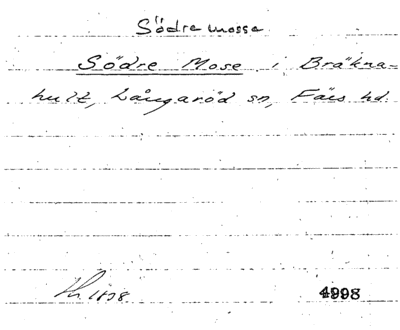 Södre mosse
Södre Mose i Bräkna-
hult, Långaröd sn, Färs hd.
1898 4998